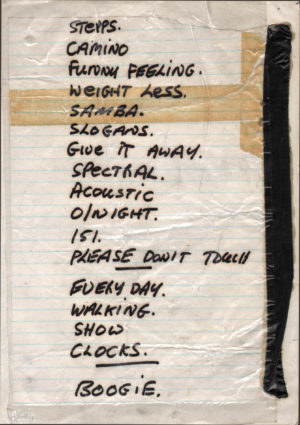 STEPPS.
CAMINO
FUNNY FEELING.
WEIGHT LESS.
SAMBA.
SLOGANS.
GIVE IT AWAY.
SPECTRAL.
ACOUSTIC
O/NIGHT.
151.
PLEASE DON'T TOUCH
EVERY DAY.
WALKING.
SHOW
CLOCKS.
BOOGIE.